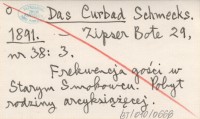 o Das Curbad Schmecks.
1891. - Zipser Bote 29,
nr 38: 3.
Frekwencja gości w
Starym Smokowcu. Pobyt
rodziny arcyksiążęcej.